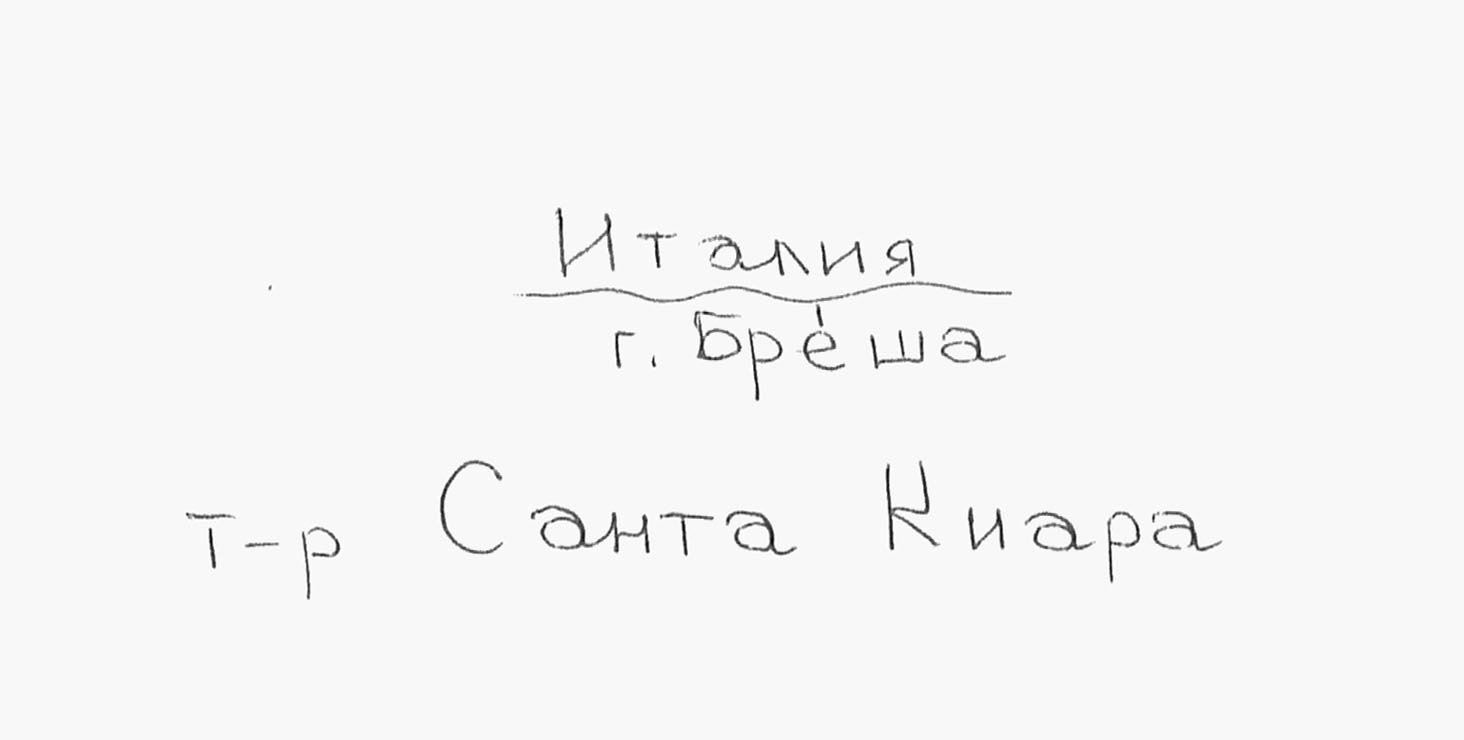 Италия
г. Бре́ша
т-р Санта Киара